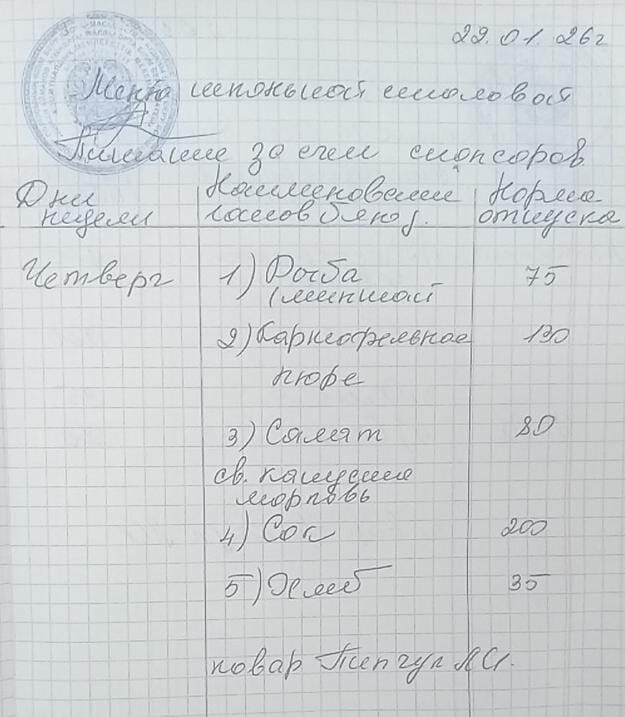 22.01.26г
Меню школьной столовой
Питание за счет спонсоров
Дни
недели
Наименование
готов блюд.
Норма
отпуска
Четверг
1) Рыба
(минтай
75
2) Картофельное
пюре
130
3) Салат
80
св. капуста
морковь
4) Сок
200
5) Хлеб
35
повар